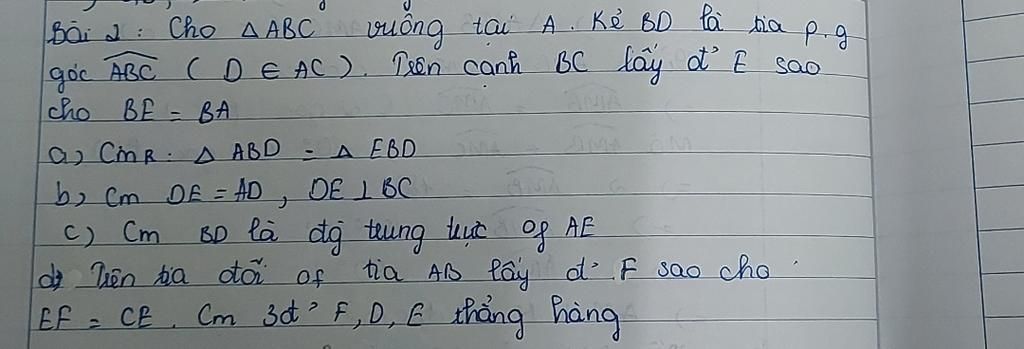 Bài 2: Cho △ABC vuông tại A. Kẻ BD là tia p.g
góc ABC (D ∈ AC). Trên cạnh BC lấy đ' E sao
cho BE = BA
a) CmR: △ ABD = △ EBD
b) Cm DE = AD, DE ⊥ BC
c) Cm BD là đg trung trực of AE
d) Trên tia đối of tia AB lấy đ' F sao cho
EF = CE. Cm 3đ' F, D, E thẳng hàng